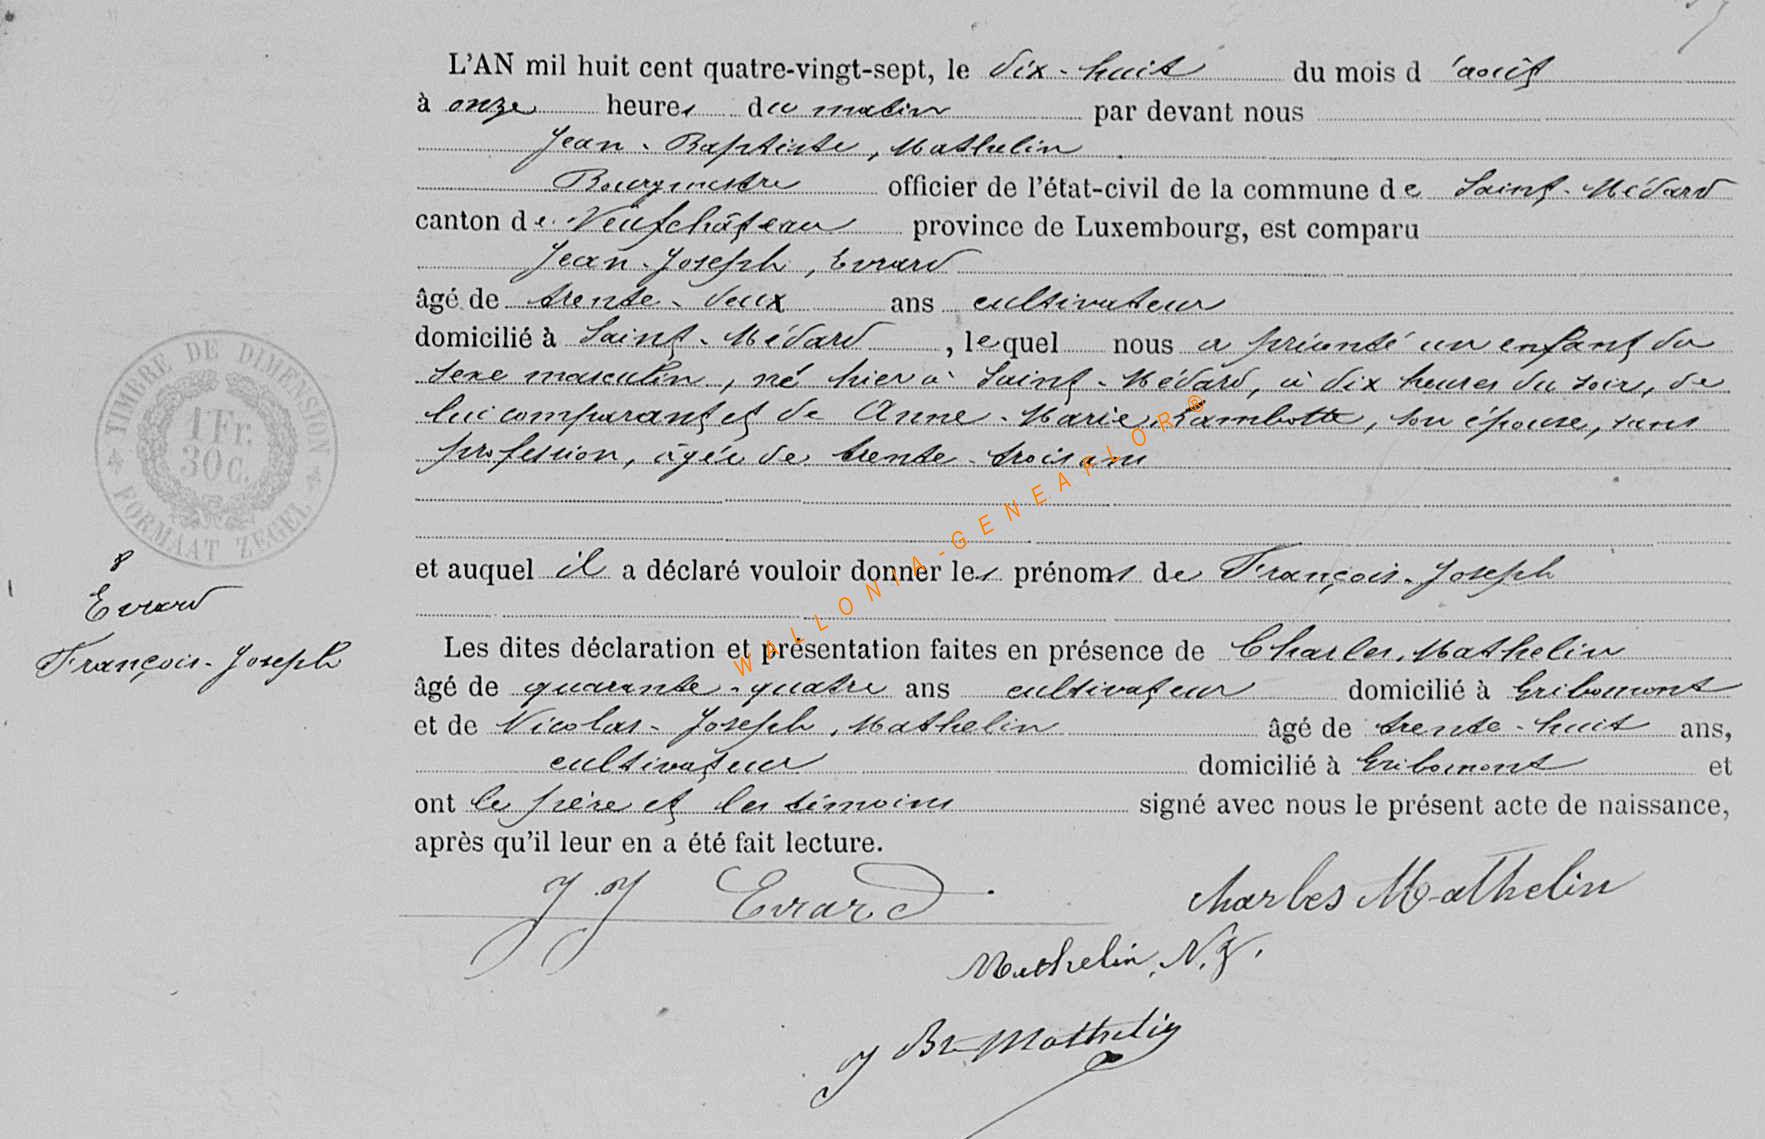 L'AN mil huit cent quatre-vingt-sept, le dix-huit du mois d'août
à onze heures du matin par devant nous
Jean-Baptiste, Mathelin
Bourgmestre officier de l'état-civil de la commune de Saint-Médard
canton de Neufchâteau province de Luxembourg, est comparu
Jean-Joseph, Evrard
âgé de trente-deux ans cultivateur
domicilié à Saint-Médard, lequel nous a présenté un enfant du
sexe masculin, né hier à Saint-Médard, à dix heures du soir, de
lui comparant et de Anne-Marie, Lambotte, son épouse, sans
profession, âgée de trente-trois ans
et auquel il a déclaré vouloir donner les prénoms de François-Joseph
Les dites déclaration et présentation faites en présence de Charles, Mathelin
âgé de quarante-quatre ans cultivateur domicilié à Gribomont
et de Nicolas-Joseph, Mathelin âgé de trente-huit ans,
cultivateur domicilié à Gribomont et
ont le père et les témoins signé avec nous le présent acte de naissance,
après qu'il leur en a été fait lecture.
JJ Evrard
Charles Mathelin
Mathelin, N.J.
J Bte Mathelin
TIMBRE DE DIMENSION
1 Fr.
30 c.
FORMAAT ZEGEL
8
Evrard
François-Joseph
WALLONIA-GENEAFLOR®